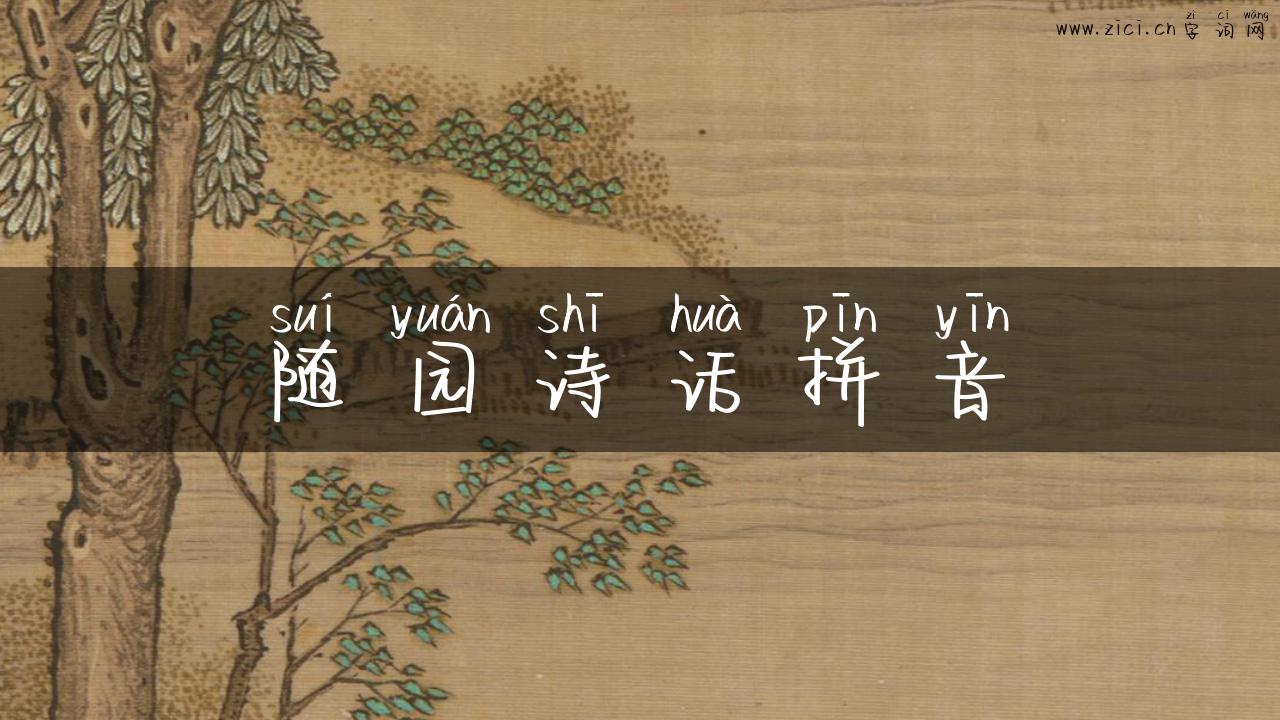 zì cí wǎng
www.zici.cn 字词网
suí yuán shī huà pīn yīn
随园诗话拼音